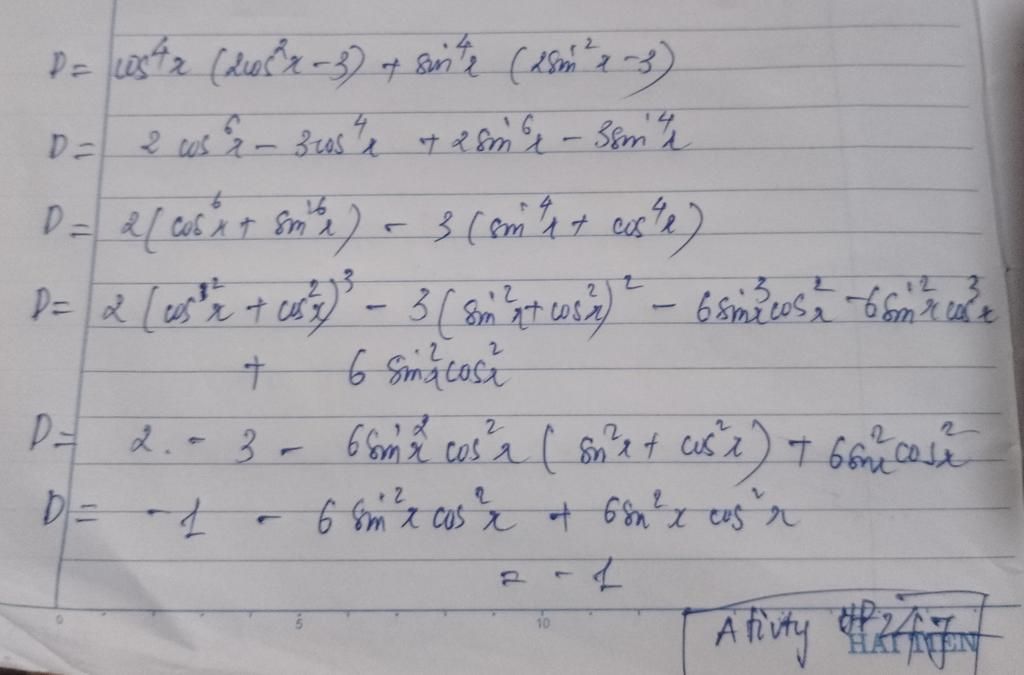 D = cos⁴x (2cos²x - 3) + sin⁴x (2sin²x - 3)
D = 2 cos⁶x - 3cos⁴x + 2sin⁶x - 3sin⁴x
D = 2(cos⁶x + sin⁶x) - 3(sin⁴x + cos⁴x)
D = 2(cos²x + cos²x)³ - 3(sin²x + cos²x)² - 6sin³x cos²x - 6sin²x cos³x
+ 6 sin²x cos²x
D = 2. - 3 - 6sin²x cos²x (sn²x + cos²x) + 6sn²x cos²x
D = -1 - 6 sin²x cos²x + 6sn²x cos²x
= -1
0 5 10
Ativty
HAI TIEN